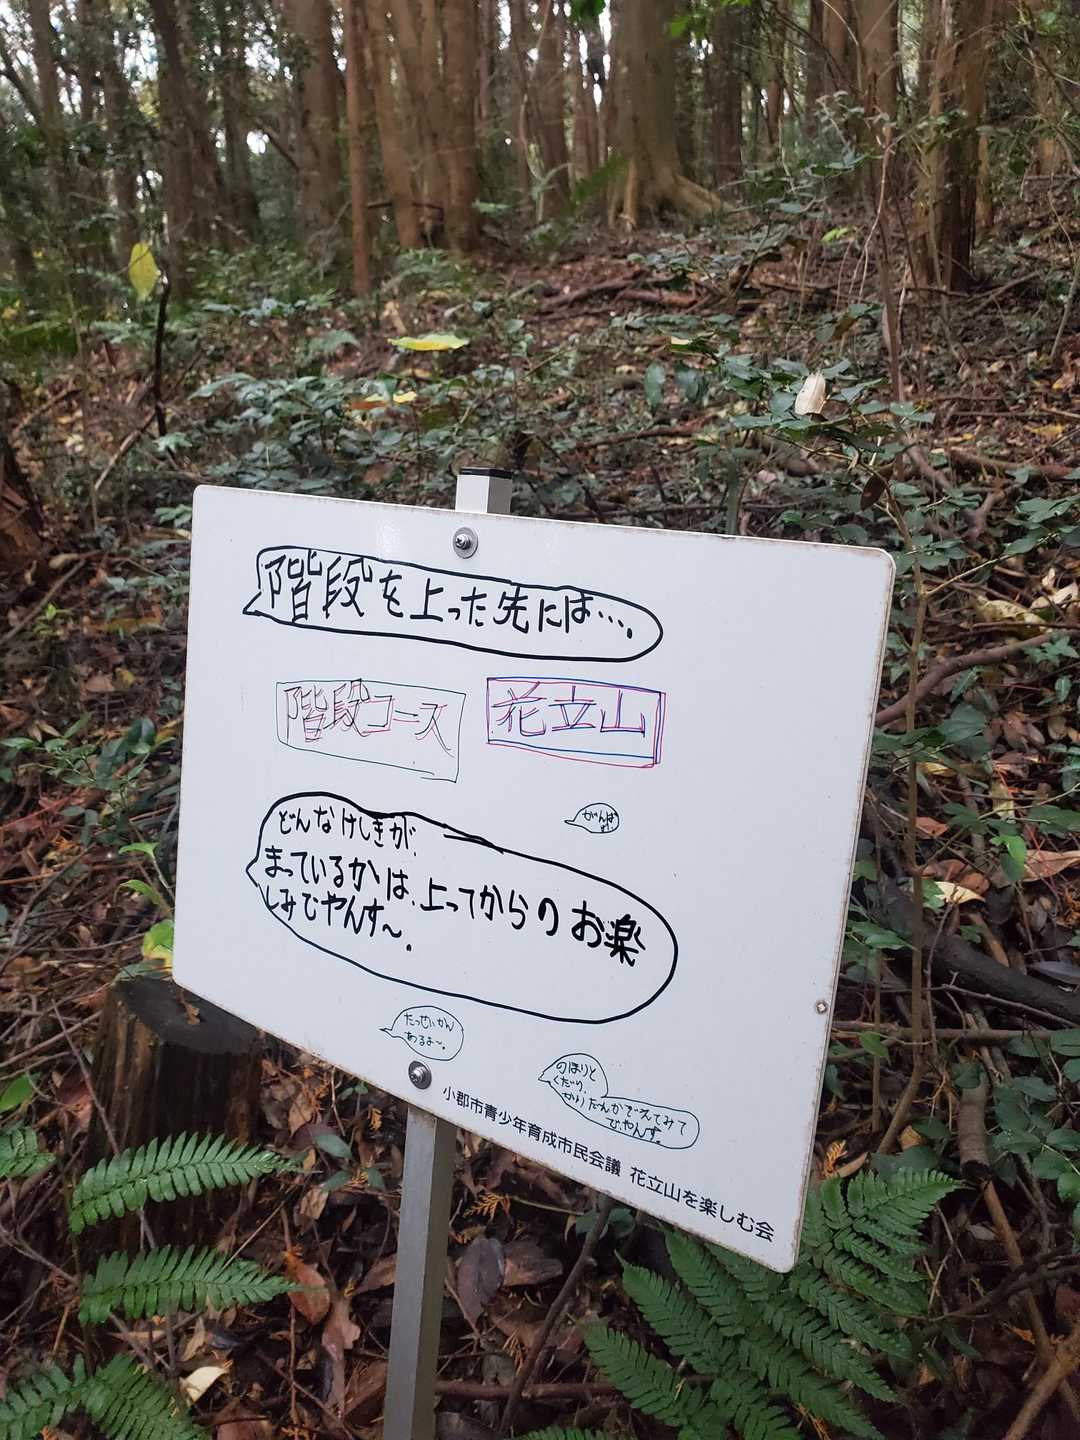 階段を上った先には…。
階段コース
花立山
がんば
れ!
どんなけしきが、
まっているかは、上ってからのお楽
しみでやんす〜。
たっせいかん
あるよ〜。
のぼりと
くだり、
かいだんかぞえてみて
でやんす。
小郡市青少年育成市民会議 花立山を楽しむ会